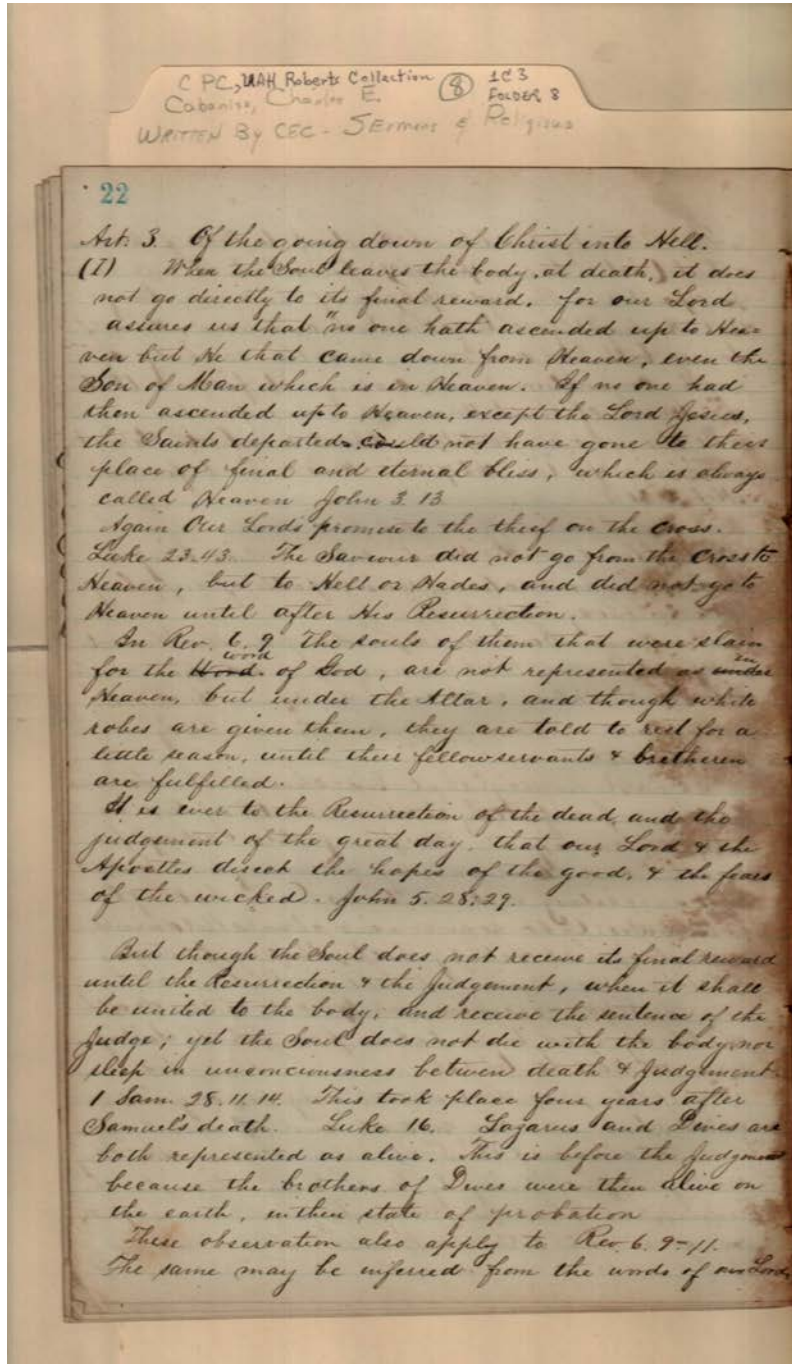 C PC, UAH Roberts Collection (8) 1C3
Cabaniss, Charles E. FOLDER 8
WRITTEN By CEC - SErmons & Religious
22
Art. 3 Of the going down of Christ into Hell.
(I) When the Soul leaves the body, at death, it does
not go directly to its final reward, for our Lord
assures us that "no one hath ascended up to Hea=
ven but He that came down from Heaven, even the
Son of Man which is in Heaven. If no one had
then ascended up to Heaven, except the Lord Jesus,
the Saints departed could not have gone to their
place of final and eternal bliss, which is always
called Heaven John 3.13
Again Our Lord's promise to the thief on the cross.
Luke 23.43. The Saviour did not go from the cross to
Heaven, but to Hell or Hades, and did not go to
Heaven until after His Resurrection.
In Rev. 6.9 the souls of them that were slain
for the Word word of God, are not represented as under in
Heaven, but under the Altar, and though white
robes are given them, they are told to rest for a
little season, until their fellowservants & bretheren
are fulfilled.
It is ever to the Resurrection of the dead, and the
judgement of the great day, that our Lord & the
Apostles direct the hopes of the good, & the fears
of the wicked. John 5.28:29.
But though the Soul does not receive its final reward
until the Resurrection & the Judgement, when it shall
be united to the body, and receive the sentence of the
Judge; yet the Soul does not die with the body, nor
sleep in unconciousness between death & Judgement.
1 Sam. 28.11.14. This took place four years after
Samuel's death. Luke 16. Lazarus and Dives are
both represented as alive. This is before the Judgment
because the brothers of Dives were then alive on
the earth, in their state of probation
These observation also apply to Rev. 6.9-11.
The same may be inferred from the words of our Lord,